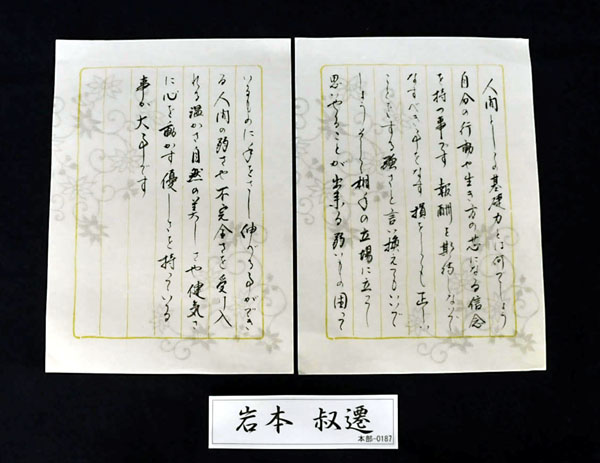 人間としての基礎力とは何でしょう
自分の行動や生き方の芯になる信念
を持つ事です 報酬を期待しないで
なすべき事をなす 損をしても正しい
ことをする強さと言い換えてもいいで
しょう そして相手の立場に立って
思いやることが出来る 弱いもの困って
いるものに手をさし伸べる事ができ
る 人間の弱さや不完全さを受け入
れる温かさ 自然の美しさや健気さ
に心を動かす優しさを持っている
事が大事です
岩本 叔遷
本部-0187